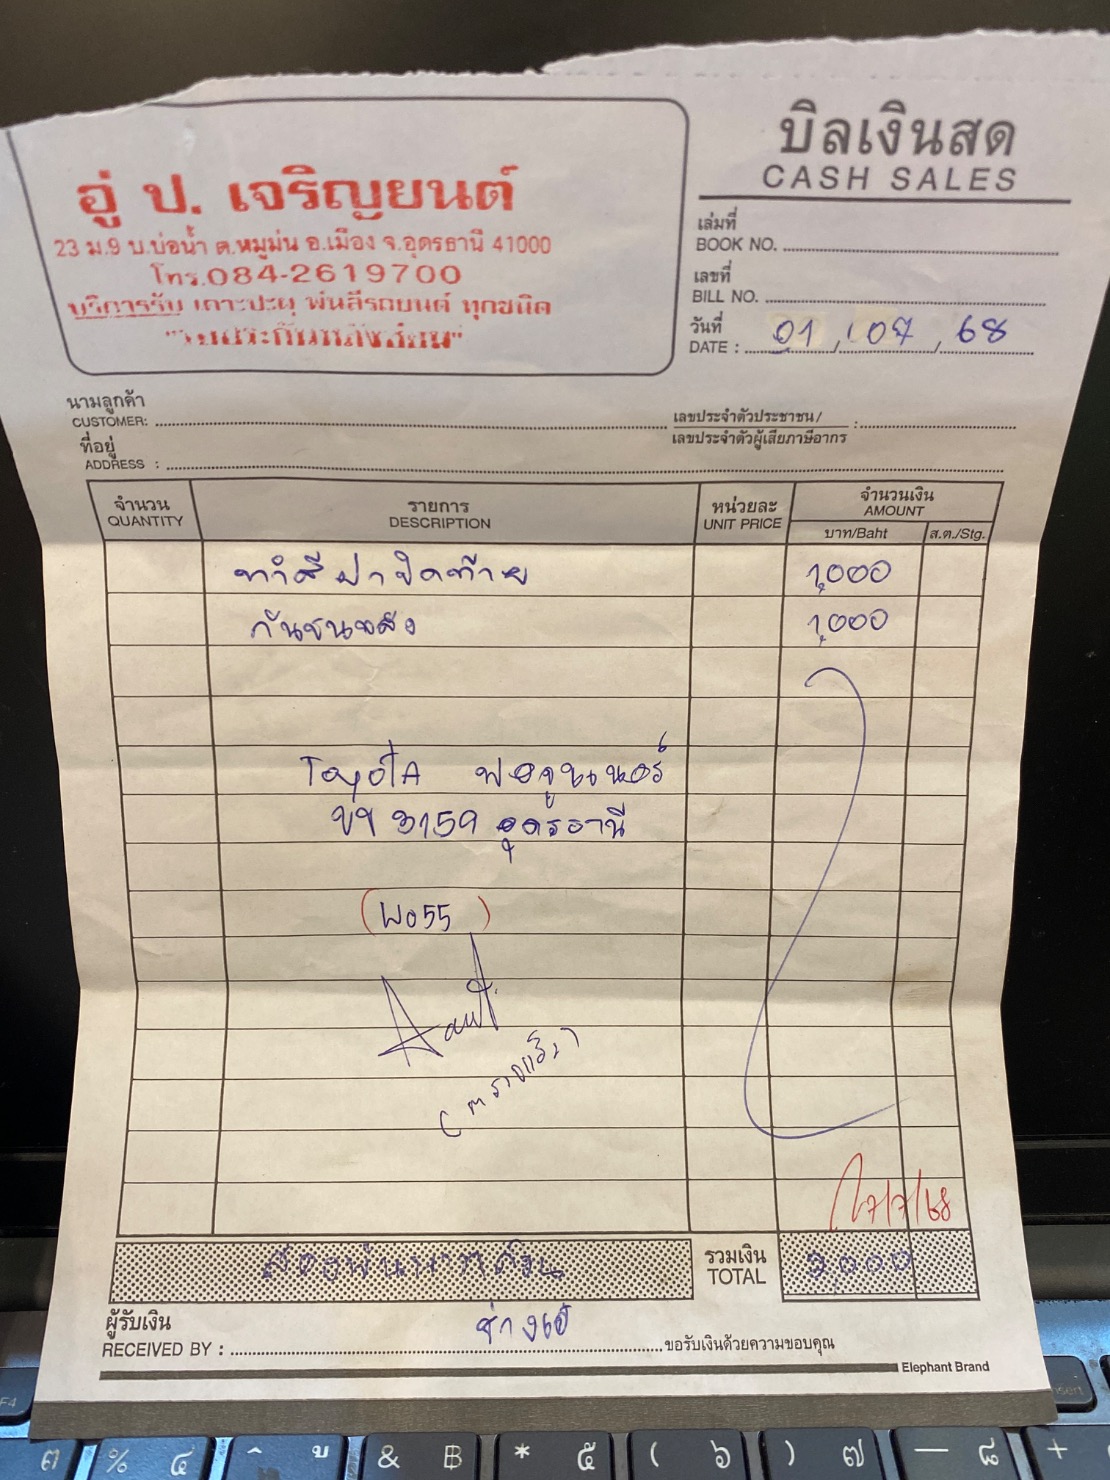 บิลเงินสด
CASH SALES
อู่ ป. เจริญยนต์
23 ม.9 บ.บ่อน้ำ ต.หมูม่น อ.เมือง จ.อุดรธานี 41000
โทร.084-2619700
บริการรับ เคาะปะผุ พ่นสีรถยนต์ ทุกชนิด
เล่มที่
BOOK NO.
เลขที่
BILL NO.
วันที่
DATE : 01 / 07 / 68
นามลูกค้า
CUSTOMER:
เลขประจำตัวประชาชน/ :
เลขประจำตัวผู้เสียภาษีอากร
ที่อยู่
ADDRESS :
จำนวน รายการ หน่วยละ จำนวนเงิน
QUANTITY DESCRIPTION UNIT PRICE AMOUNT
บาท/Baht ส.ต./Stg.
ทำสีฝาปิดท้าย 1,000
กันชนหลัง 1,000
ToyoTA ฟอจูนเนอร์
ขข 3159 อุดรธานี
(พอ55)
(ตรวจแล้ว)
17/7/68
สองพันบาทถ้วน
รวมเงิน 2,000
TOTAL
ผู้รับเงิน
RECEIVED BY : ขอรับเงินด้วยความขอบคุณ
Elephant Brand
F4
insert
๓ % ๔ ^ ู & ฿ * ๕ ( ๖ ) ๗ — ๘ +